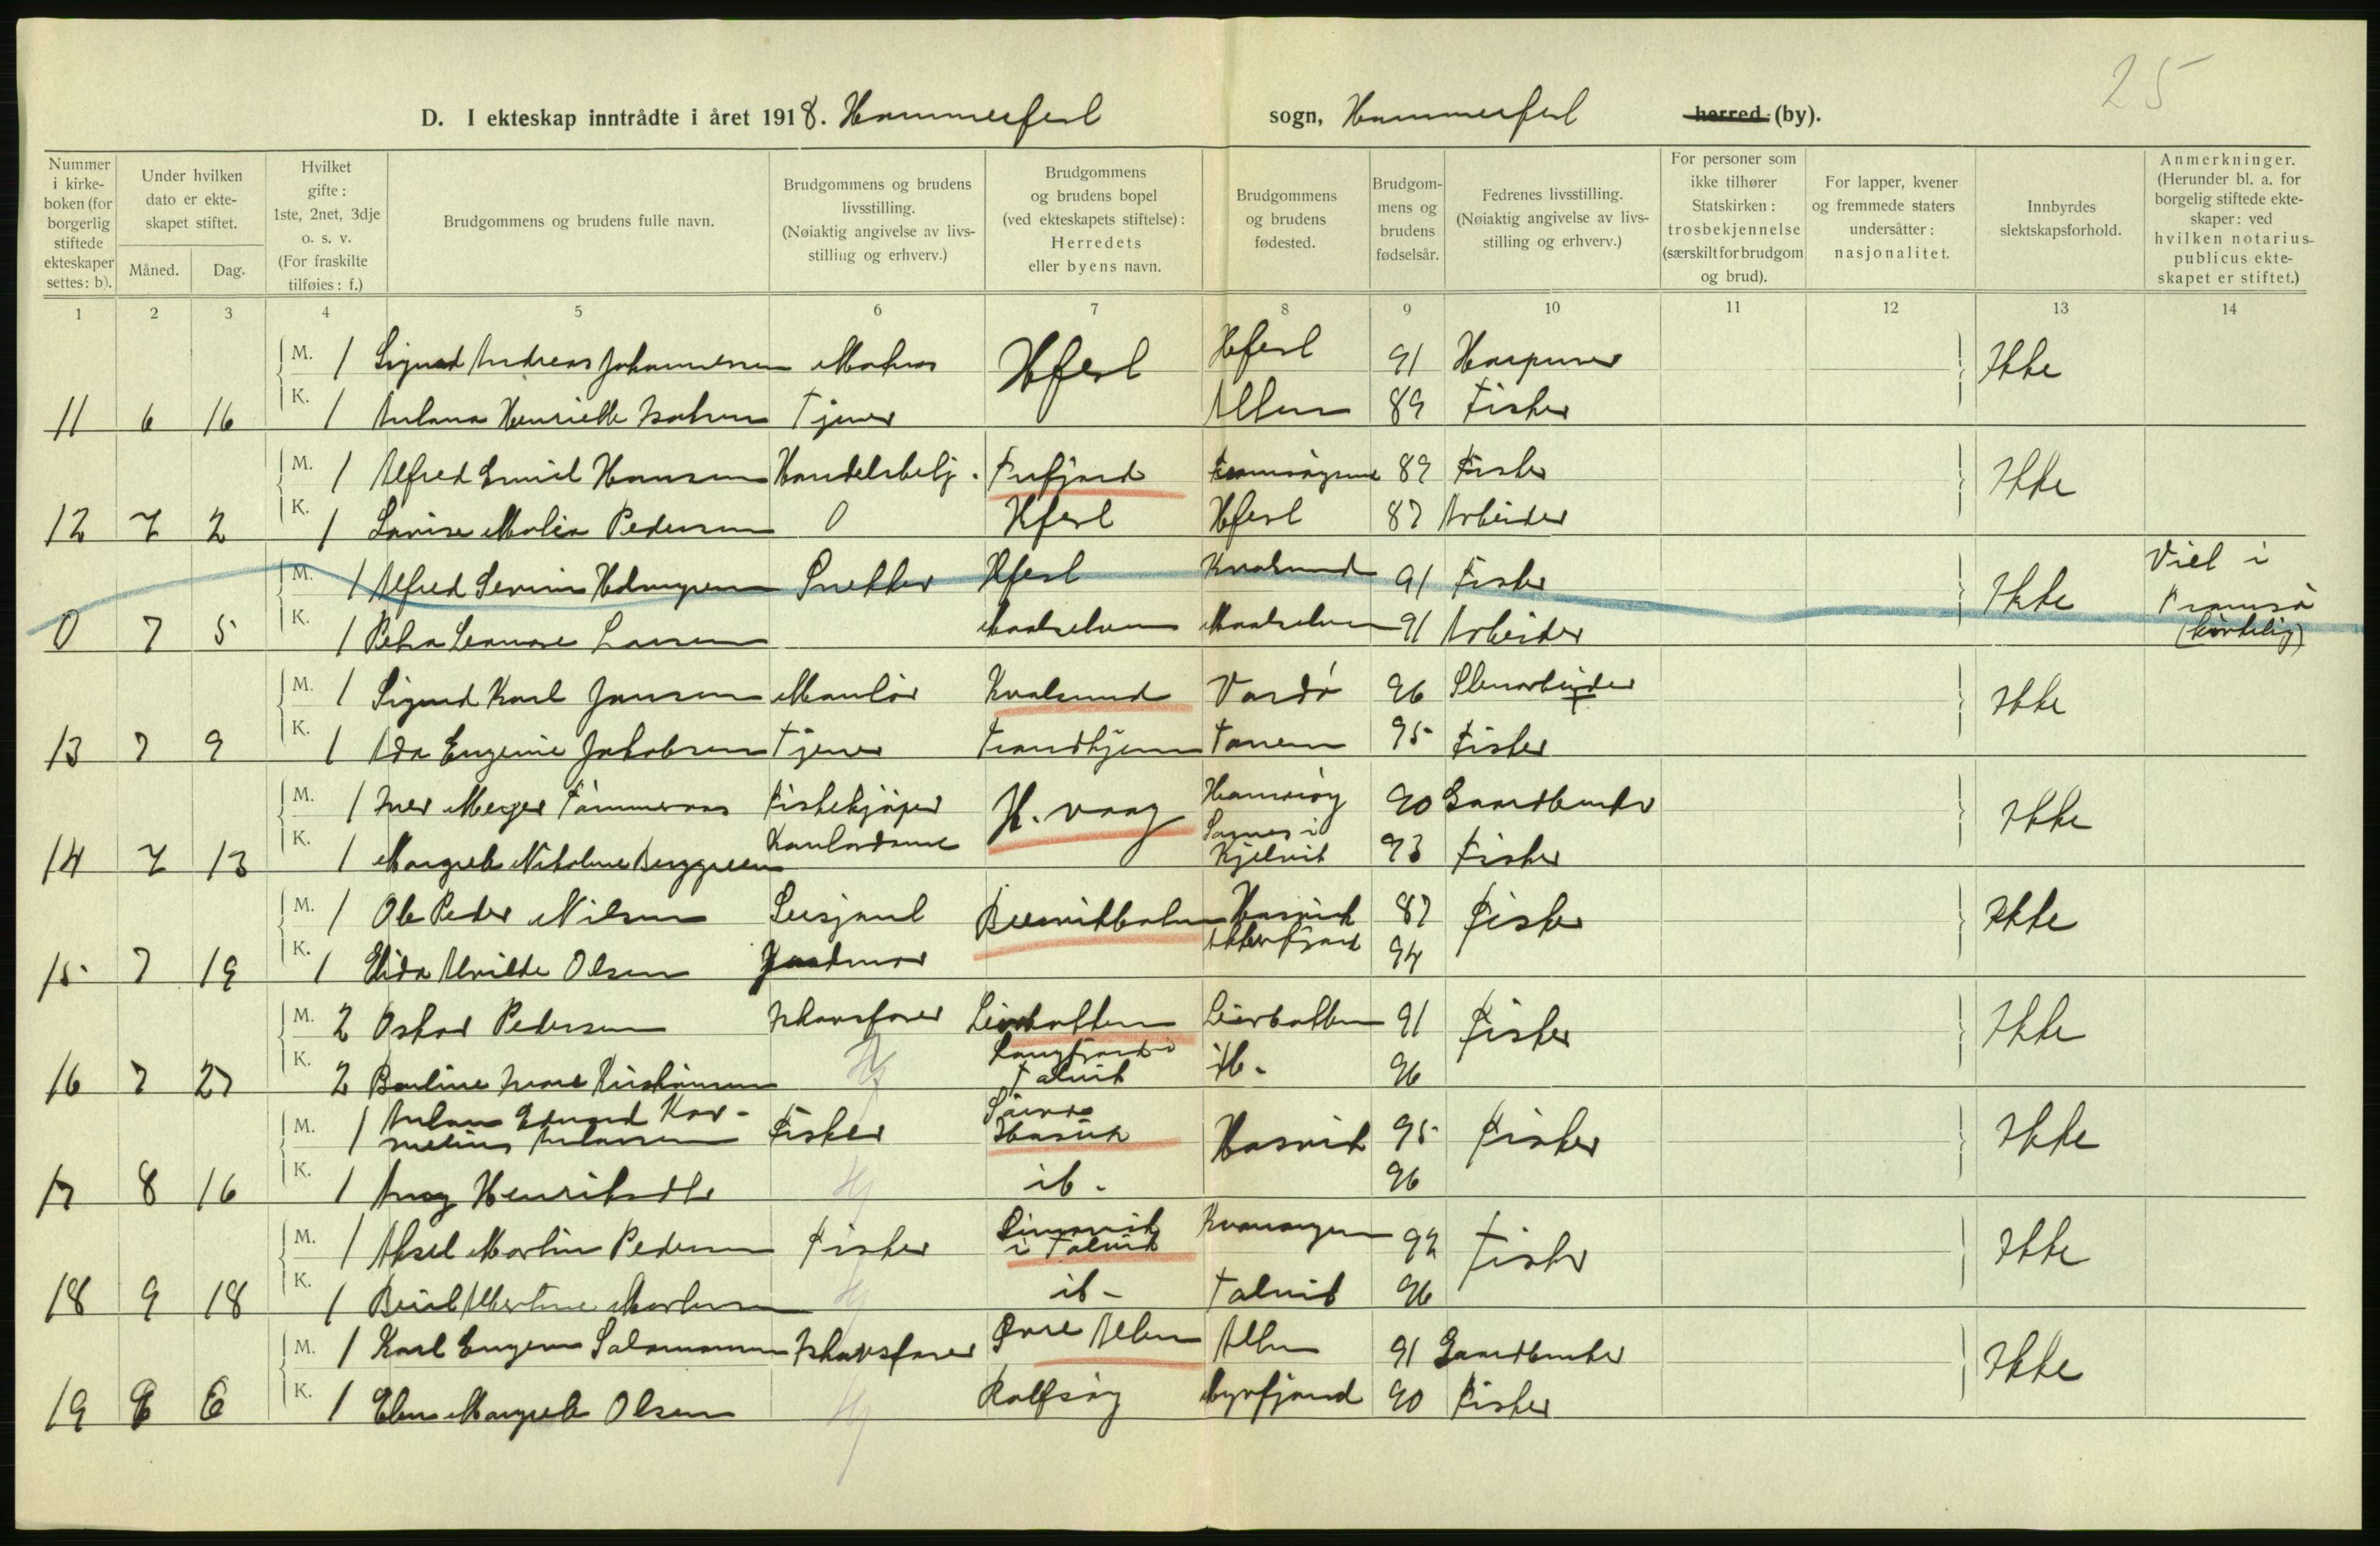 25
D. I ekteskap inntrådte i året 1918. Hammerfest sogn, Hammerfest herred (by).
Nummer i kirkeboken (for borgerlig stiftede ekteskaper settes: b).
Under hvilken dato er ekteskapet stiftet.
Måned.
Dag.
Hvilket gifte: 1ste, 2net, 3dje o. s. v. (For fraskilte tilføies: f.)
Brudgommens og brudens fulle navn.
Brudgommens og brudens livsstilling. (Nøiaktig angivelse av livsstilling og erhverv.)
Brudgommens og brudens bopel (ved ekteskapets stiftelse): Herredets eller byens navn.
Brudgommens og brudens fødested.
Brudgommens og brudens fødselsår.
Fedrenes livsstilling. (Nøiaktig angivelse av livsstilling og erhverv.)
For personer som ikke tilhører Statskirken: trosbekjennelse (særskilt for brudgom og brud).
For lapper, kvener og fremmede staters undersåtter: nasjonalitet.
Innbyrdes slektskapsforhold.
Anmerkninger. (Herunder bl. a. for borgelig stiftede ekteskaper: ved hvilken notarius publicus ekteskapet er stiftet.)
1 2 3 4 5 6 7 8 9 10 11 12 13 14
M. 1 Sigurd Andreas Johannesen Matros Hfest Hfest 91 Harpuner Ikke
11 6 16 K. 1 Antona Henriette Isaksen Tjener Alten 89 Fisker
M. 1 Alfred Emil Hansen Handelsbetj. Tufjord 89 Fisker Ikke
12 7 2 K. 1 Lovise Malia Pedersen 0 Hfest Hfest 87 Arbeider
M. 1 Alfred Severin Snekker Hfest Kvalsund 91 Fisker Ikke Viet i Tromsø (kirkelig)
0 7 5 K. 1 Petra Leonore Larsen Maalselven Maalselven 91 Arbeider
M. 1 Sigurd Karl Jansen Montør Kvalsund Vardø 96 Stenarbeider Ikke
13 7 9 K. 1 Ida Eugenie Jakobsen Tjener Trondhjem Tanen 95 Fisker
M. 1 Iver Meyer Tømmeraas Fiskekjøper H. vaag 90 Gaardbruker Ikke
14 7 13 K. 1 Margrete Nikoline Berggreen Kontordame Sarnes i Kjelvik 93 Fisker
M. 1 Ole Peder Nilsen Hasvik 87 Fisker Ikke
15 7 19 K. 1 Elida Alvilde Olsen Jordmor Akkarfjord 94
M. 2 Oskar Pedersen Ishavsfarer Leirbotten Leirbotten 91 Fisker Ikke
16 7 27 K. 2 Pauline Kristiansen Hj Langfjord i Talvik ib. 96
M. 1 Anton Edvard Kornelius Antonsen Fisker Hasvik Hasvik 95 Fisker Ikke
17 8 16 K. 1 Henriksdtr Hj ib. 96
M. 1 Aksel Martin Pedersen Fisker i Talvik Kvænangen 92 Fisker Ikke
18 9 18 K. 1 Albertine Mortensen Hj ib. Talvik 96
M. 1 Karl Eugen Salamonsen Ishavsfarer Øvre Alten Alten 91 Gaardbruker Ikke
19 K. 1 Margrete Olsen Hj Rolfsøy Myrfjord 90 Fisker